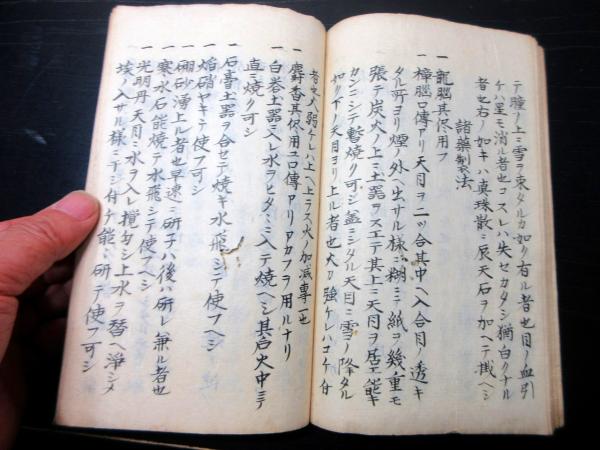 テ瞳ノ上ニ雪ヲ束タルカ如ク有ル者也目ノ血引
ケハ星モ消ル者也コスレハ失セカタシ猶白クナル
者也右ノ如キハ真珠散ニ辰天石ヲ加ヘテ撒ヘシ
諸藥製法
一 龍脳其侭用フ
一 樟脳口傳アリ天目ヲ二ッ合其中ヘ入合目ノ透キ
タル所ヨリ煙ノ外ヘ出サル様ニ糊ニテ紙ヲ幾重モ
張テ炭火ノ上ニ土器ヲスエテ其上ニ天目ヲ居エ能キ
カンニシテ暫焼ク可シ蓋ニシタル天目ニ雪ノ降タル
如ク下ノ天目ヨリ上ル者也火カ強ケレハコケ付
者也火弱ケレハ上ヘ上ラス火ノ加減専一也
一 麝香其侭用ユ口傳アリアカフラ用ルナリ
一 白礬土器ニ入レ水ヲヒタ〱ニ入テ焼ヘシ其后火中ニテ
直ニ焼ク可シ
一 石膏土器ヲ合セテ焼キ水飛シテ使フヘシ
一 焔硝ヤキテ使フ可シ
一 硼砂湧上ル者也早速ニ研チハ後ハ研レ兼ル者也
一 寒水石能焼テ水飛シテ使フヘシ
一 光明丹天目ニ水ヲ入レ撹カシ上水ヲ替ヘ浄シメ
埃ノ入サル様ニシテ付ケ能ク研テ使フ可シ